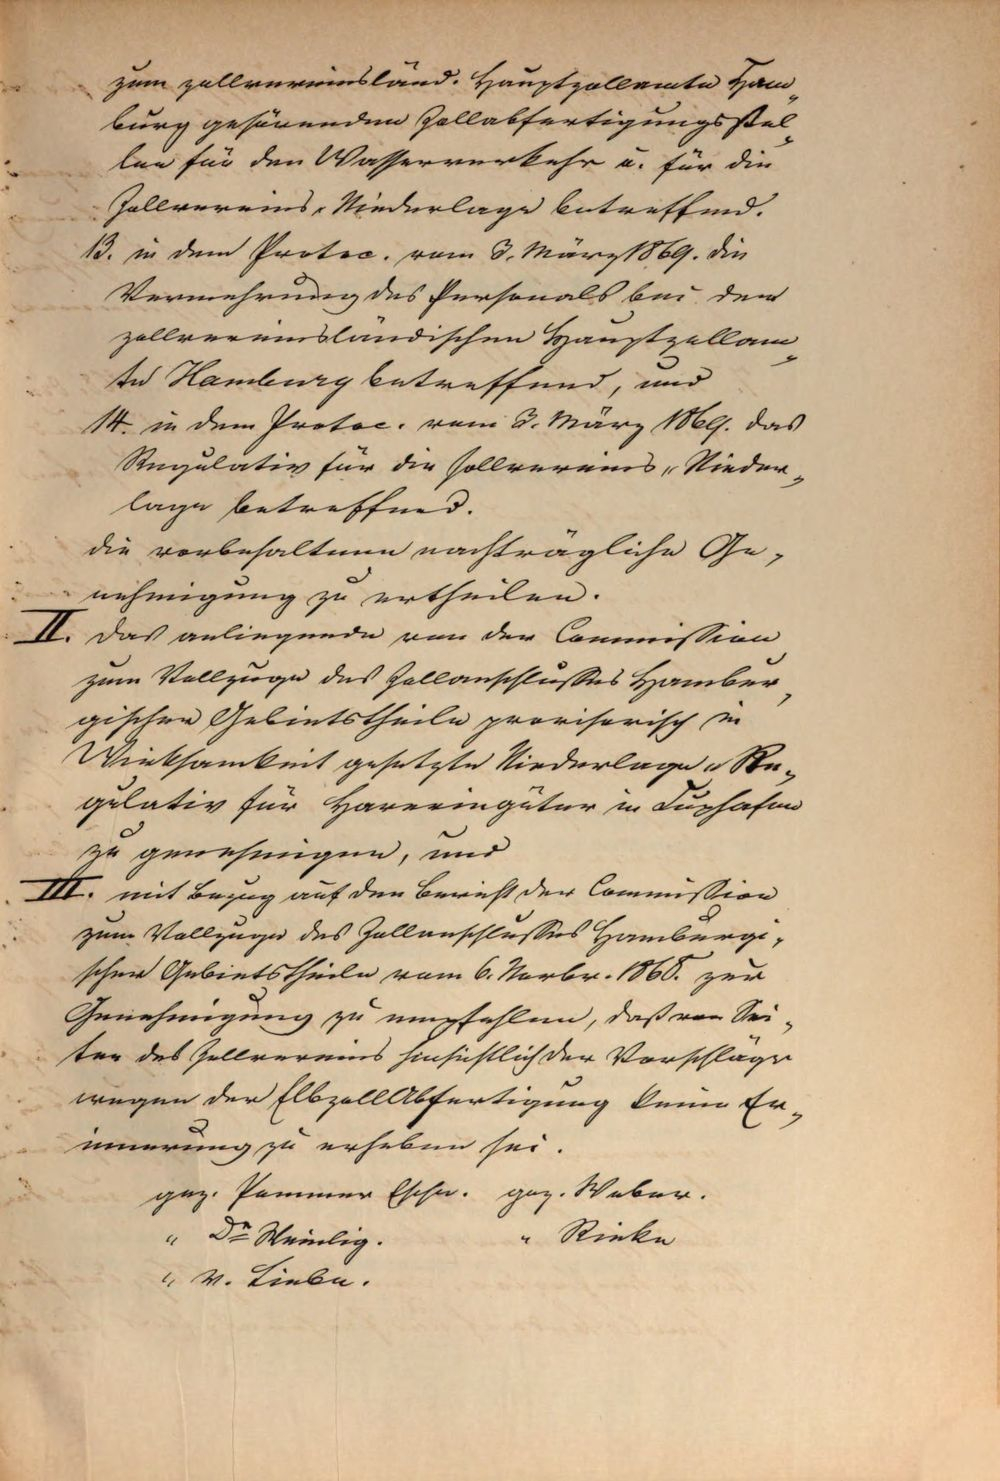 zum zollvereinsländ. Hauptzollamte Ham„
burg gehörenden Zollabfertigungsstel„
len für den Wasserverkehr u. für die
Zollvereins„Niederlage betreffend.
13. in dem Protoc. vom 3. März 1869. die
Vermehrung des Personals bei dem
zollvereinsländischen Hauptzollam„
te Hamburg betreffend, und
14. in dem Protoc. vom 3. März 1869. das
Regulativ für die Zollvereins„Nieder„
lage betreffend.
die vorbehaltene nachträgliche Ge„
nehmigung zu ertheilen.
II. das anliegende von der Commission
zum Vollzuge des Zollanschlusses Hambur„
gischer Gebietstheile provisorisch in
Wirksamkeit gesetzte Niederlage„Re„
gulativ für Havereigüter in Cuxhafen
zu genehmigen, und
III. mit Bezug auf den Bericht der Commission
zum Vollzuge des Zollanschlusses Hamburgi„
scher Gebietstheile vom 6. Novbr. 1868. zur
Genehmigung zu empfehlen, daß von Sei„
ten des Zollvereins hinsichtlich der Vorschläge
wegen der Elbzoll Abfertigung keine Er„
innerung zu erheben sei.
gez. Pommer Esche. gez. Weber.
" Dr Weinlig. " Rieke
" v. Liebe.